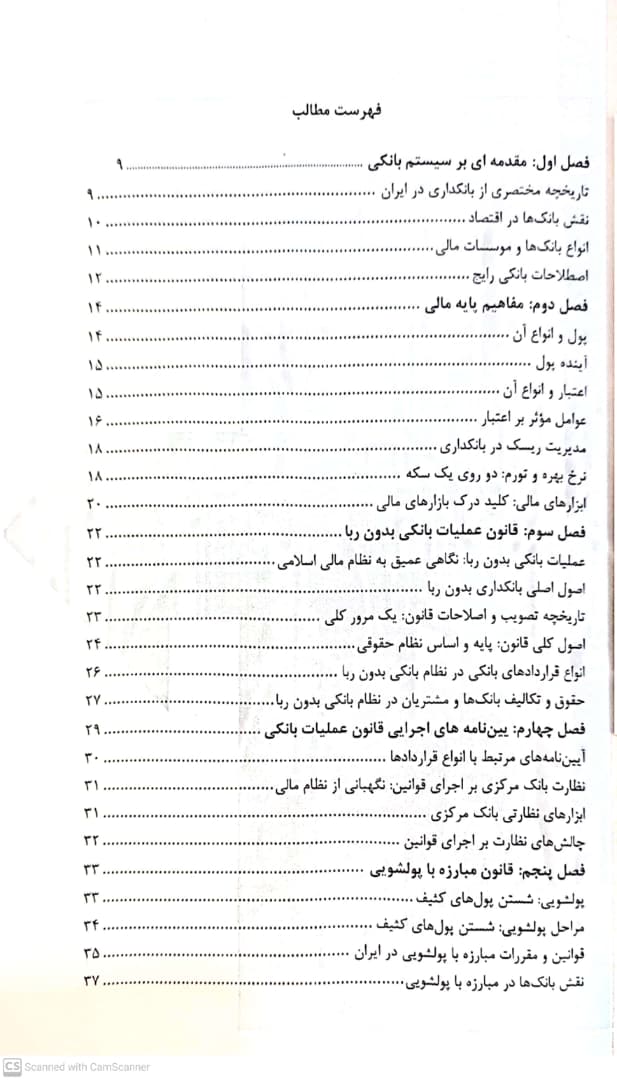 فهرست مطالب
فصل اول: مقدمه ای بر سیستم بانکی ........................ ۹
تاریخچه مختصری از بانکداری در ایران ........................ ۹
نقش بانک‌ها در اقتصاد ........................ ۱۰
انواع بانک‌ها و موسسات مالی ........................ ۱۱
اصطلاحات بانکی رایج ........................ ۱۲
فصل دوم: مفاهیم پایه مالی ........................ ۱۴
پول و انواع آن ........................ ۱۴
آینده پول ........................ ۱۵
اعتبار و انواع آن ........................ ۱۵
عوامل مؤثر بر اعتبار ........................ ۱۶
مدیریت ریسک در بانکداری ........................ ۱۸
نرخ بهره و تورم: دو روی یک سکه ........................ ۱۸
ابزارهای مالی: کلید درک بازارهای مالی ........................ ۲۰
فصل سوم: قانون عملیات بانکی بدون ربا ........................ ۲۲
عملیات بانکی بدون ربا: نگاهی عمیق به نظام مالی اسلامی ........................ ۲۲
اصول اصلی بانکداری بدون ربا ........................ ۲۲
تاریخچه تصویب و اصلاحات قانون: یک مرور کلی ........................ ۲۳
اصول کلی قانون: پایه و اساس نظام حقوقی ........................ ۲۴
انواع قراردادهای بانکی در نظام بانکی بدون ربا ........................ ۲۶
حقوق و تکالیف بانک‌ها و مشتریان در نظام بانکی بدون ربا ........................ ۲۷
فصل چهارم: یین‌نامه های اجرایی قانون عملیات بانکی ........................ ۲۹
آیین‌نامه‌های مرتبط با انواع قراردادها ........................ ۳۰
نظارت بانک مرکزی بر اجرای قوانین: نگهبانی از نظام مالی ........................ ۳۱
ابزارهای نظارتی بانک مرکزی ........................ ۳۱
چالش‌های نظارت بر اجرای قوانین ........................ ۳۲
فصل پنجم: قانون مبارزه با پولشویی ........................ ۳۳
پولشویی: شستن پول‌های کثیف ........................ ۳۳
مراحل پولشویی: شستن پول‌های کثیف ........................ ۳۴
قوانین و مقررات مبارزه با پولشویی در ایران ........................ ۳۵
نقش بانک‌ها در مبارزه با پولشویی ........................ ۳۷
CS Scanned with CamScanner